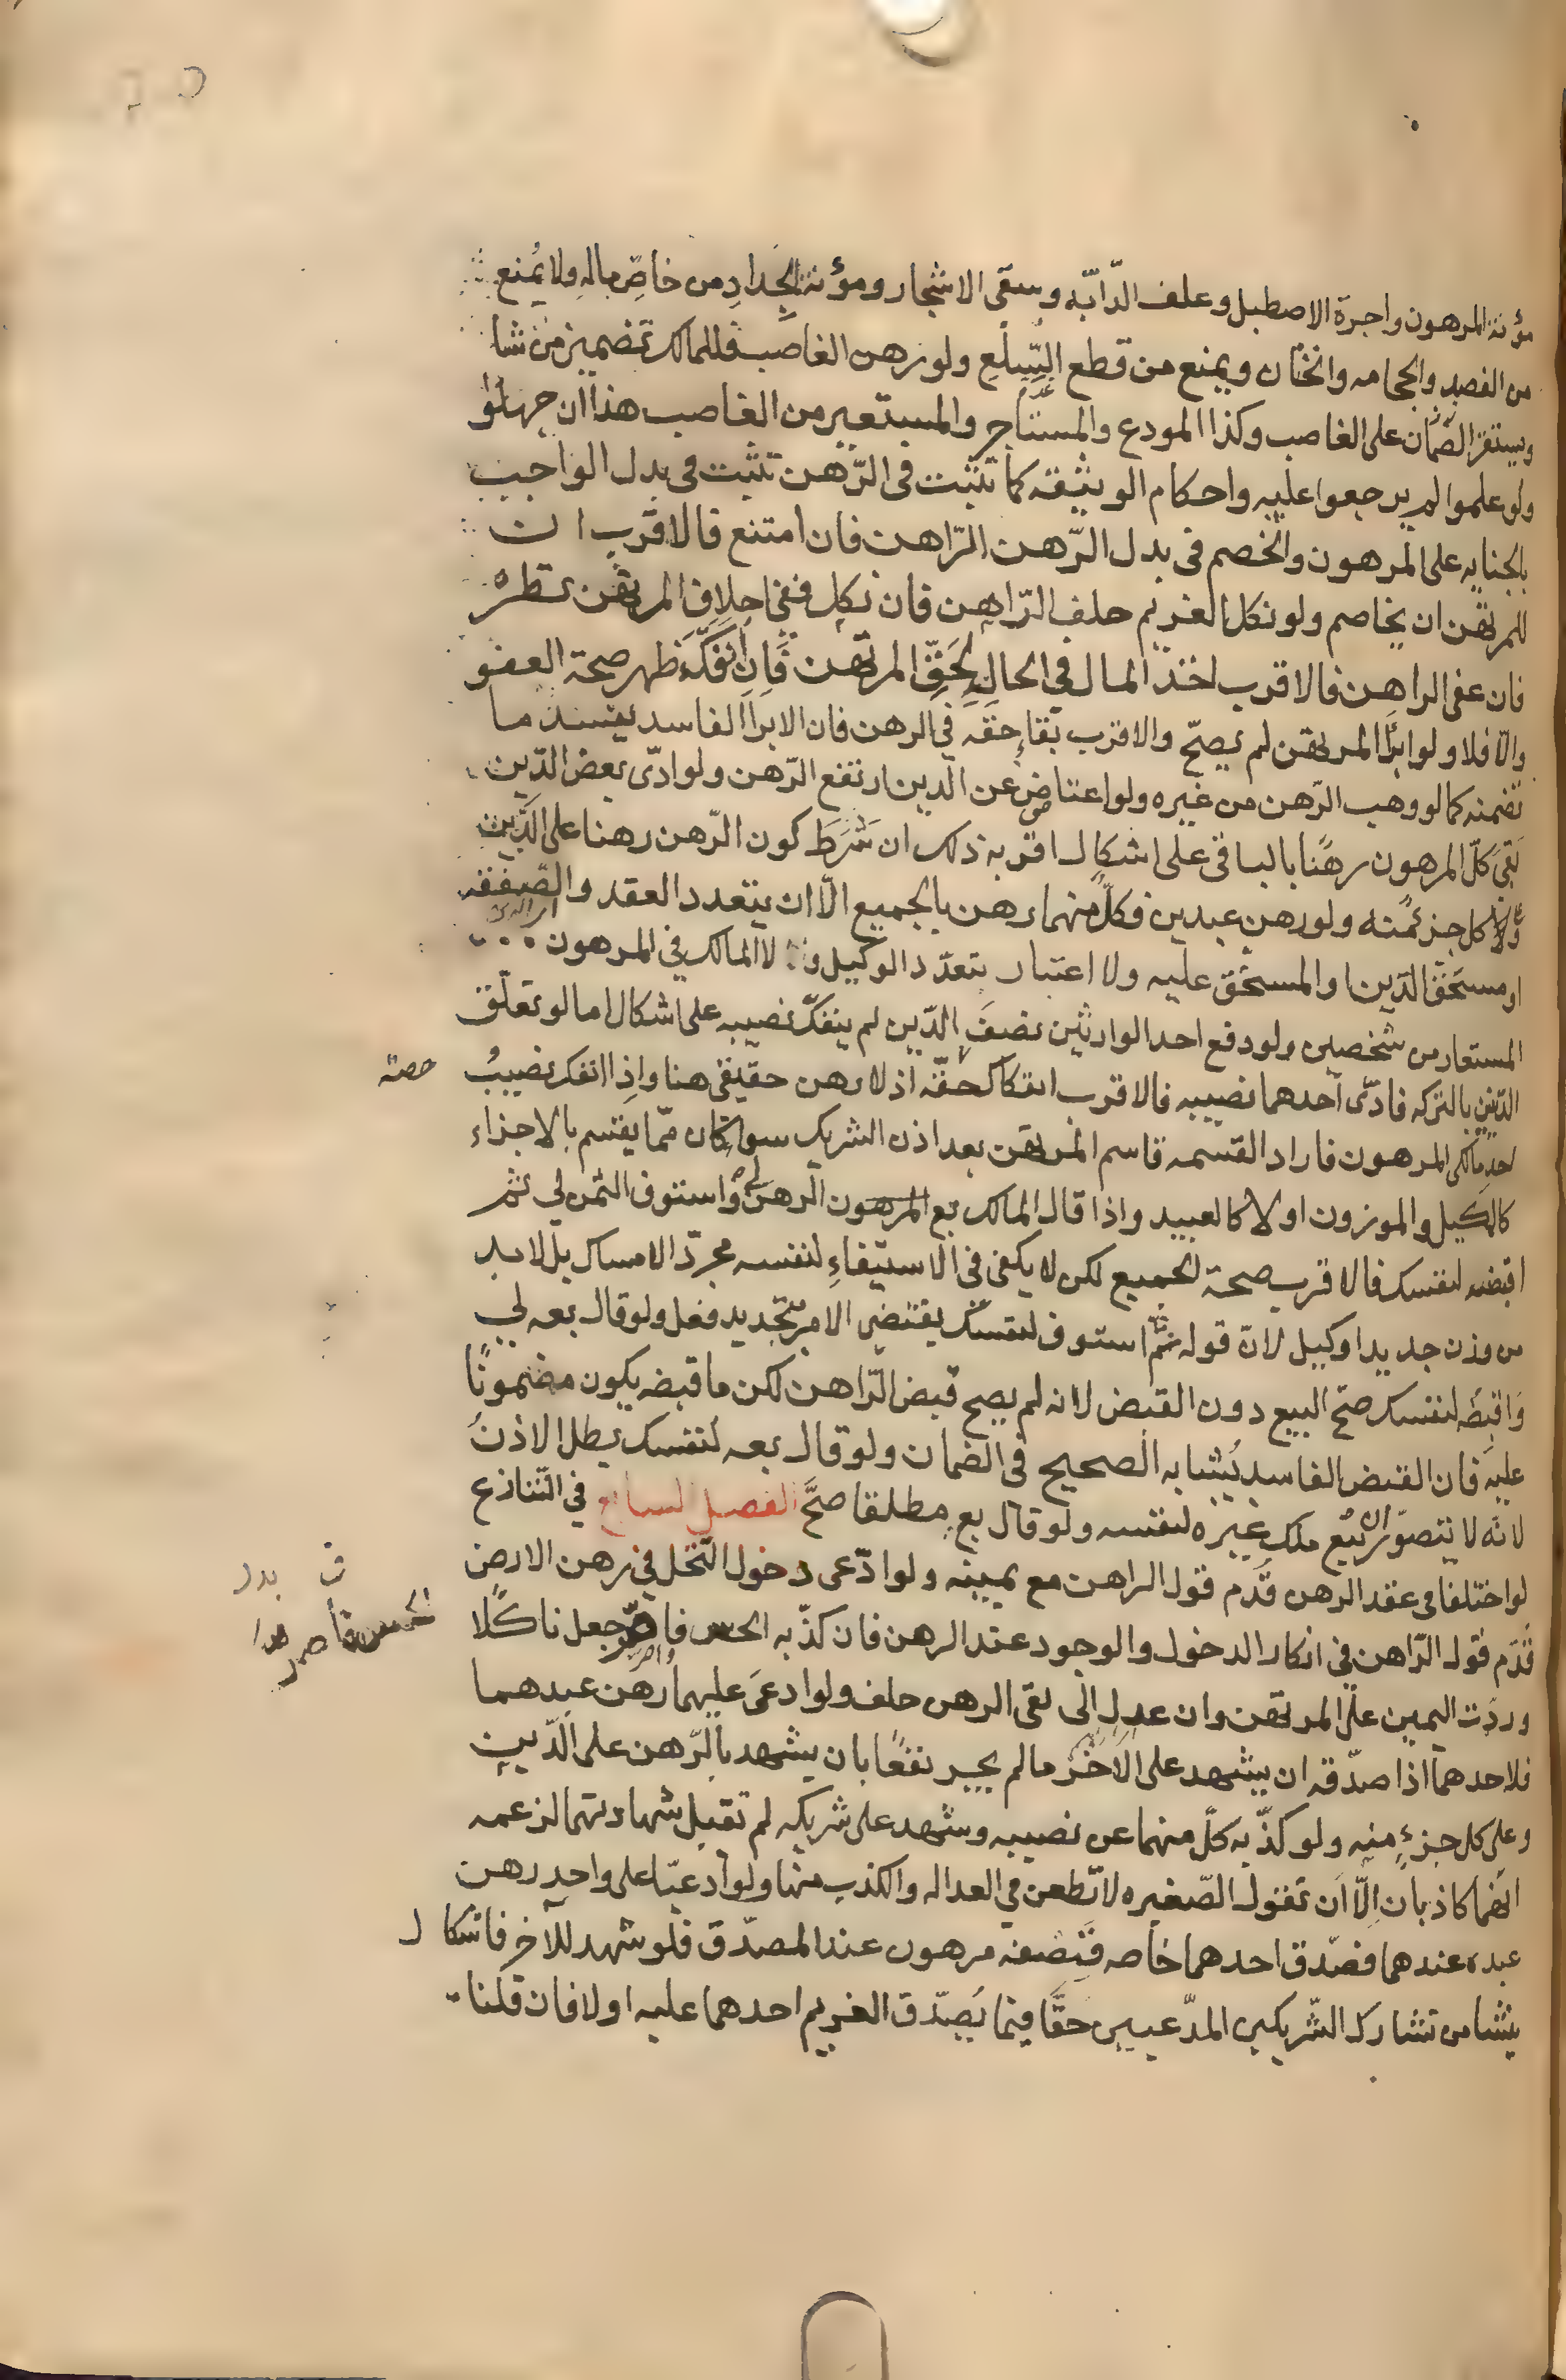 مؤنة المرهون واجرة الاصطبل وعلف الدّابّه وسقى الاشجار ومؤنة الجداد من خاصّ ماله ولا يُمنع
من الفصد والحجامه والختان ويمنع من قطع السِّلَعِ ولو رهن الغاصب فللمالك تضمين من شا
ويستقر الضمان على الغاصب وكذا المودع والمستاجر والمستعير من الغاصب هذا ان جهلوا
ولو علموا لم يرجعوا عليه واحكام الوثيقه كما تثبت فى الرّهن تثبت فى بدل الواجب
بالجنايه على المرهون والخصم فى بدل الرّهن الرّاهن فان امتنع فالاقرب ان
للمرتهن ان يخاصم ولو نكل الغريم حلف الرّاهن فان نكل ففى احلاف المرتهن نظر
فان عفى الراهن فالاقرب اخذ المال فى الحال لِحَقِّ المرتهن فان انفكّ ظهر صحة العفو
والّا فلا ولو ابرَا المرتهن لم يصحّ والاقرب بقاء حقّه فى الرهن فان الابرا الفاسد يفسد ما
تضمنه كما لو وهب الرّهن من غيره ولو اعتاض عن الدين ارتفع الرّهن ولو ادّى بعض الدّين
بقى كلّ المرهون رهنًا بالباقى على اشكال اقربه ذلك ان شَرَطَ كون الرّهن رهنا على الدّين
وكل جزء منه ولو رهن عبدين فكلّ منهما رهن بالجميع الّا ان يتعدد العقد والصّفقه
او مستحقّ الدّين او المستحَق عليه ولا اعتبار بتعدّد الوكيل و لا المالك فى المرهون
المستعار من شخصين ولو دفع احد الوارثين نصفَ الدّين لم ينفكّ نصيبه على اشكال اما لو تعلّق
الدّين بالتركه فادّى احدهما نصيبه فالاقرب افتكاك حقّه اذ لا رهن حقيقى هنا واذا انفك نصيبُ
حصته
احد مالكى المرهون فاراد القسمه قاسم المرتهن بعد اذن الشريك سوا كان ممّا يقسم بالاجزاء
كالمكيل والموزون اولا كالعبيد واذا قال المالك بع المرهون الرهن لى واستوف الثمن لى ثم
اقبضه لنفسك فالاقرب صحة الجميع لكن لا يكفى فى الاستيفاءِ لنفسه مجرّد الامساك بل لابد
من وزن جديد او كيل لانّ قوله ثمّ استوف لنفسك يقتضى الامر بتجديد فعل ولو قال بعه لى
واقبضْه لنفسك صحّ البيع دون القبض لانه لم يصح قبض الرّاهن لكن ما قبضه يكون مضمونًا
عليه فان القبض الفاسد يُشابه الصحيح فى الضمان ولو قال بعه لنفسك بطل الاذنُ
لانه لا يتصوّر ان يبيع ملك غيره لنفسه ولو قال بع مطلقا صحَّ الفصل السابع فى التّنازع
لو اختلفا فى عقد الرهن قُدّم قول الراهن مع يمينه ولو ادّعى دخول النّخل فى رهن الارض
قُدّم قول الرّاهن فى انكار الدخول والوجود عند الرهن فان كذّبه الحس فاصرّ جعل ناكلًا
وردّت اليمين على المرتهن وان عدل الى نفى الرهن حلف ولو ادعى عليهما رهن عبدهما
فلاحدهما اذا صدّقه ان يشهد على الاخر ما لم يجر نفعًا بان يشهد بالرّهن على الدّين
وعلى كل جزءٍ منه ولو كذّبه كلّ منهما عن نصيبه وشهد على شريكه لم تقبل شهادتهما لزعمه
انهما كاذبان الّا ان تقول الصّغيره لا تطعن فى العداله والكذب منها ولو ادعيّا على واحد رهن
عبده عندهما فصدّق احدهما خاصه فنصفه مرهون عند المصدّق فلو شهد للآخر فاشكال
ينشا من تشارك الشّريكين المدّعيين حقًّا فيما يُصدّق الغريم احدهما عليه اولا فان قلنا